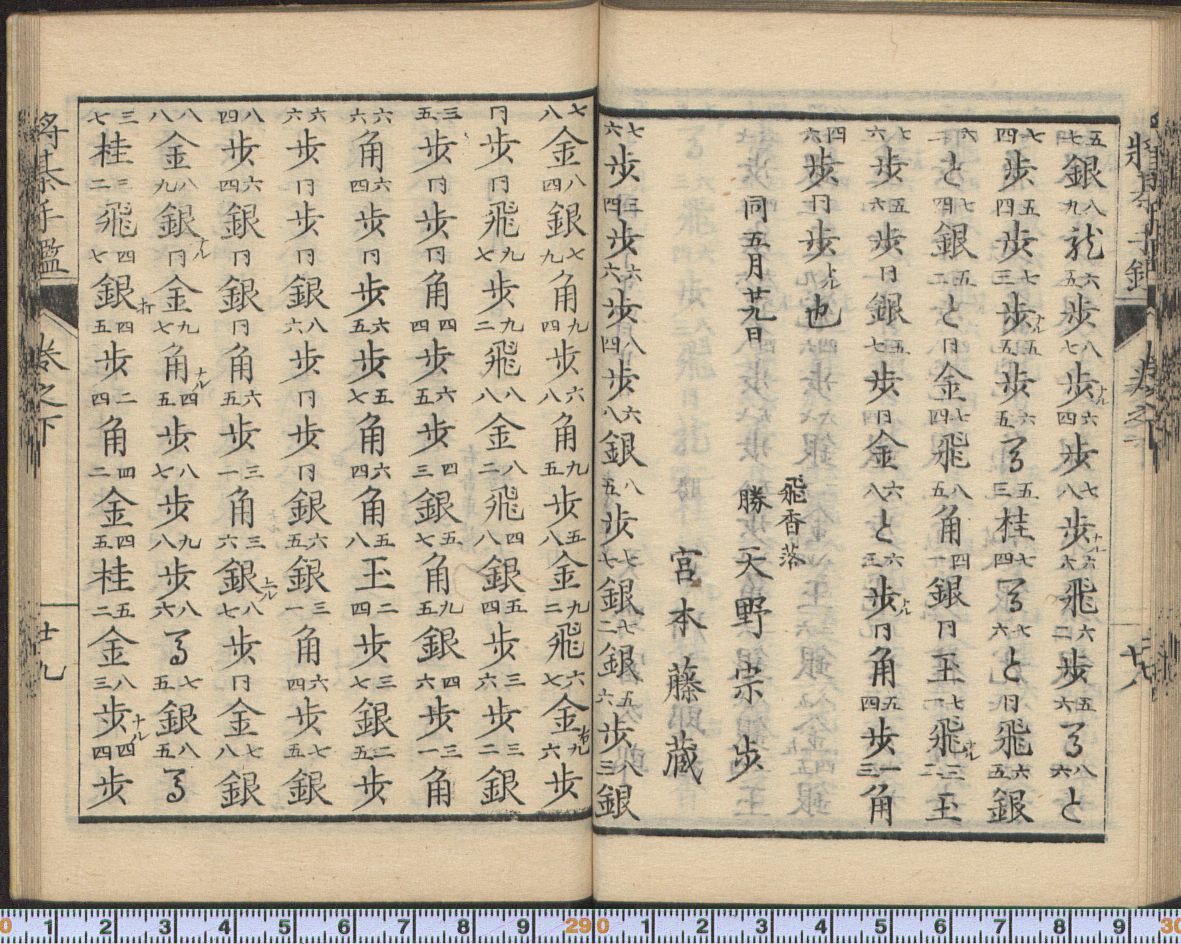 五七銀八九龍六五歩八七歩ナル六四歩七八歩ナル六六飛六二歩五六馬八六と
七四歩五四歩七三歩ナル五五歩六五馬五三桂七四馬七六と同飛六五銀
六二と七四銀五二と同金七四飛八五角四銀同玉七飛ナル三二玉
七六歩五六歩同銀五七歩同金六八と六五歩ナル同角五四歩一三角
四六歩同歩ナル也
飛香落
同五月廿九日
勝 天野宗歩
宮本藤蔵
七六歩三四歩六六歩八四歩六八銀八五歩七七銀七二銀五六歩八三銀
七八金八四銀七九角九四歩六八角九五歩五八金九二飛六七金右九六歩
同歩同飛九七歩九二飛八八金八二飛四八銀五四歩三六歩三二銀
三五歩同歩同角四四歩四三銀五七角九五銀四六歩三一角
六六角六四歩同歩六五歩五七角六四角五八玉二四歩三七銀二五歩
六六歩同歩同銀八六歩同歩同銀六五銀三一角六四歩七五銀
八四歩六四銀同銀同角六五歩三一角三六銀上ル八七歩同金七八銀
八八金八九銀ナル同金九七角ナル四五歩八七歩九八歩八六馬七五銀八五馬
三七桂三二飛四七銀打四五歩二四角四二金四五桂五二金八三歩ナル四四歩
将棊手鑑 巻之下 廿九